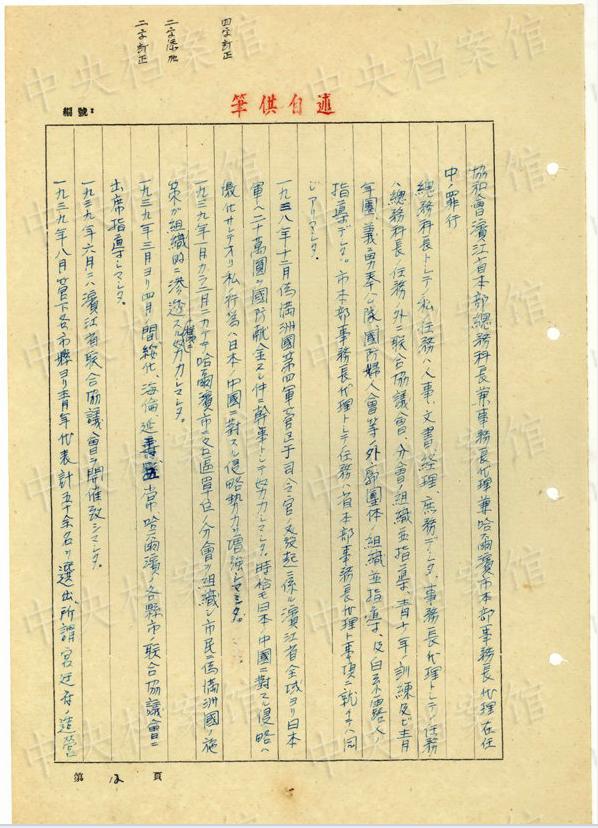 四字訂正
二字添加
二字訂正
筆供自述
編號：
協和會濱江省本部總務科長兼事務長代理兼哈爾濱市本部事務長代理在任
中ノ罪行
總務科長トシテノ私ノ任務ハ人事、文書、経理、庶務デシタ、事務長代理トシテノ任務
ハ總務科長ノ任務ノ外ニ联合協議會、分會ノ組織並指導、青少年ノ訓練及ビ青
年團、義勇奉公隊國防婦人會等ノ外廓團体ノ組織並指導、及白系露人
指導デシタ。市本部事務長代理トシテノ任務ハ省本部事務長代理ト事項ニ就テハ同
ジデアリマシタ。
一九三八年十二月偽満洲國第四軍管区于司令官ノ發起ニ係ル濱江省全域ヨリ日本
軍ヘ二十萬圓ノ國防献金スル件ニ幹事トシテ努力シマシタ。時恰モ日本ノ中國ニ對スル侵略ハ
激化サレテオリ私ノ行為ハ日本ノ中國ニ對スル侵略勢力ヲ増強シマシタ。
一九三九年一月カラ二月ニカケテ哈爾濱市ニ各區單位ノ分會ヲ組織シ市民ニ偽満洲國ノ施
策ガ組織的ニ滲透スル様ニ努力シマシタ。
一九三九年三月ヨリ四月ノ間綏化、海倫、延壽、五常、哈爾濱ノ各縣市ノ联合協議會ニ
出席指導シマシタ。
一九三九年六月ニハ濱江省联合協議會ヲ開催致シマシタ。
一九三九年八月管下各市縣ヨリ青年代表計五十余名ヲ選出、所謂宮廷府ノ造營
第 12 頁
中央档案馆